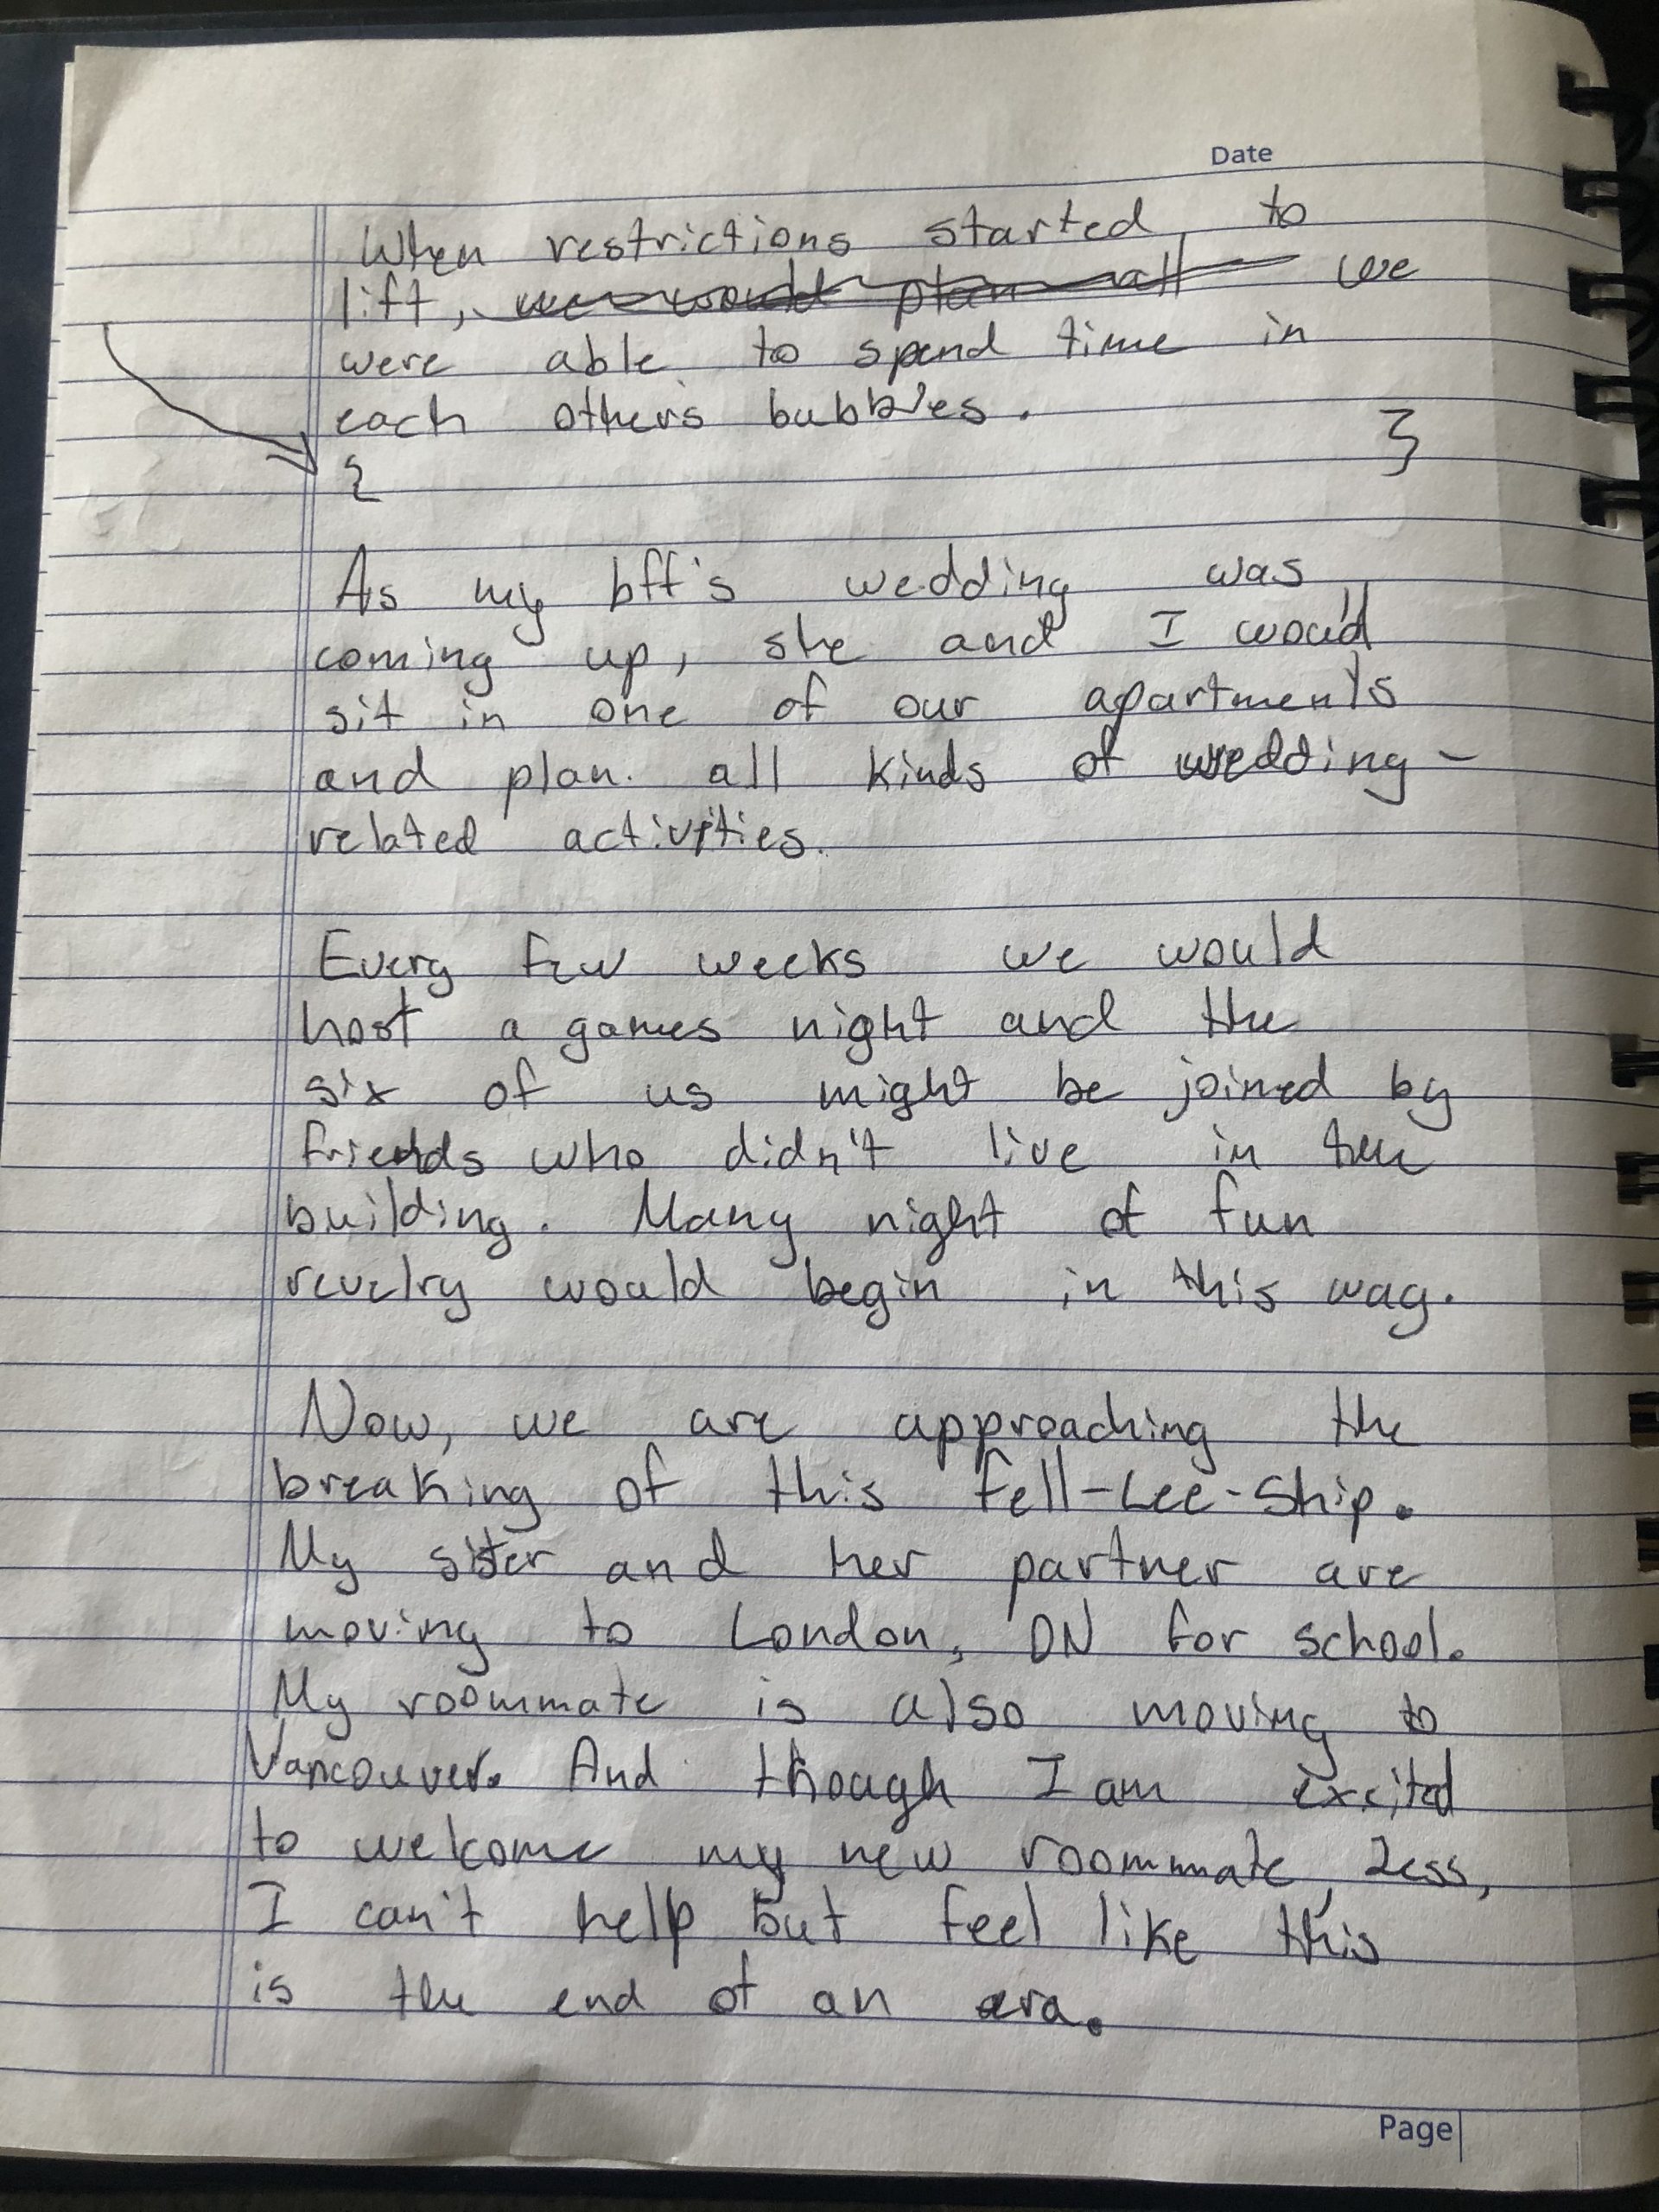 Date
When restrictions started to
lift, we would plan all we
were able to spend time in
each others bubbles.
{ }
As my bff's wedding was
coming up, she and I would
sit in one of our apartments
and plan. all kinds of wedding-
related activities.
Every few weeks we would
host a games night and the
six of us might be joined by
friends who didn't live in the
building. Many night of fun
revelry would begin in this way.
Now, we are approaching the
breaking of this Fell-Lee-Ship.
My sister and her partner are
moving to London, ON for school.
My roommate is also moving to
Vancouver. And though I am excited
to welcome my new roommate,
I can't help but feel like this
is the end of an era.
Page